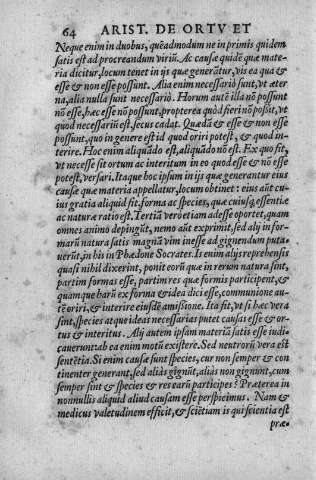 64 ARIST. DE ORTV ET
Neque enim in duobus, quēadmodum ne in primis quidem
satis est ad procreandum virium. Ac causæ quidē quæ mate-
ria dicitur, locum tenet in ijs quæ generātur, vis ea qua &
esse & non esse possunt. Alia enim necessariò sunt, vt æter
na, alia nulla sunt necessariò. Horum autē illa nō possunt
nō esse, hæc esse nō possunt, propterea quòd fieri nō possit, vt
quod necessariū est, secus cadat. Quædā & esse & non esse
possunt, quo in genere est id quod oriri potest, & quod in-
terire. Hoc enim aliquādo est, aliquādo nō est. Ex quo fit,
vt necesse sit ortum ac interitum in eo quod esse & nō esse
potest, versari. Itaque hoc ipsum in ijs quæ generantur eius
causæ quæ materia appellatur, locum obtinet: eius aūt cu-
ius gratia aliquid fit, forma ac species, quæ cuiusq; essentiæ
ac naturæ ratio est. Tertiā verò etiam adesse oportet, quam
omnes animo depingūt, nemo aūt exprimit, sed alij in for-
marū natura satis magnā vim inesse ad gignendum puta-
uerūt, in his in Phædone Socrates. Is enim alijs reprehensis
quasi nihil dixerint, ponit eorū quæ in rerum natura sint,
partim formas esse, partim res quæ formis participent, &
quamque harū ex forma & idea dici esse, communione au-
tē oriri, & interire eiusdē amissione. Ita fit, vt si hæc vera
sint, species atque ideas necessariò putet causas esse & or-
tus & interitus. Alij autem ipsam materiā satis esse iudi-
cauerunt: ab ea enim motū existere. Sed neutrorū vera est
sentētia. Si enim causæ sunt species, cur non semper & con
tinenter generant, sed aliàs gignūt, aliàs non gignunt, cum
semper sint & species & res earū participes? Præterea in
nonnullis aliquid aliud causam esse perspicimus. Nam &
medicus valetudinem efficit, & sciētiam is qui scientia est
præ-